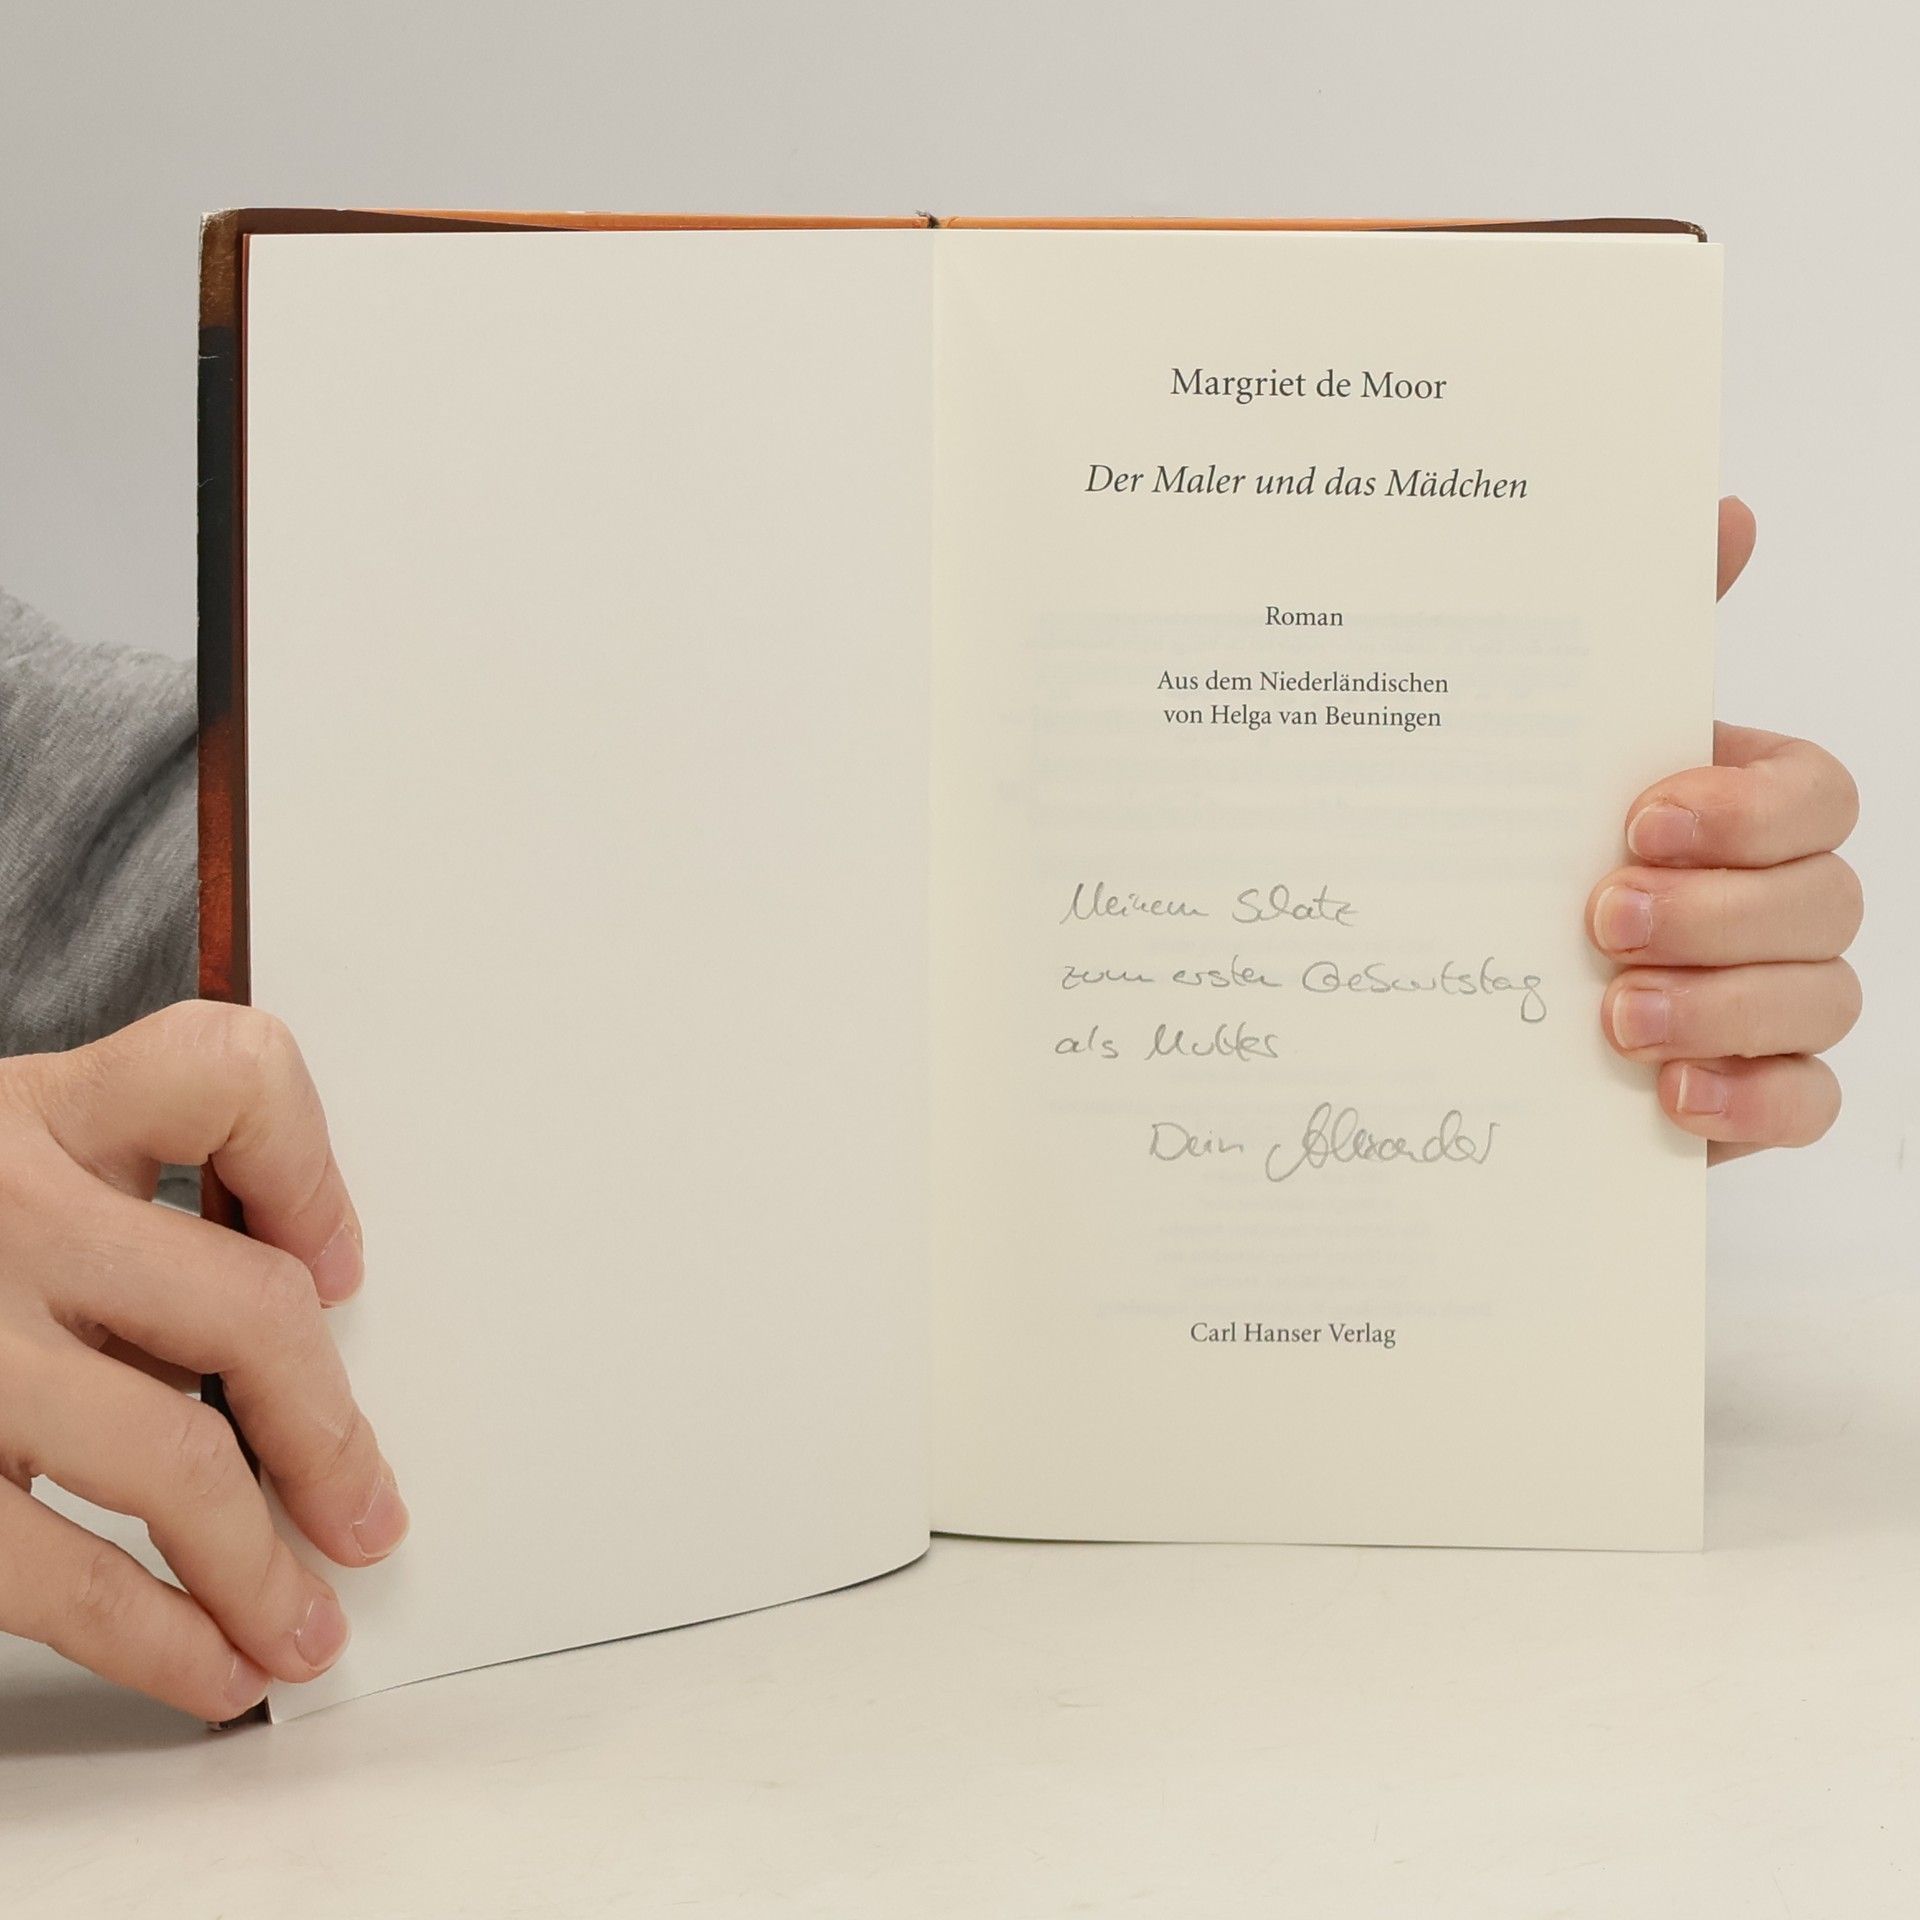 Margriet de Moor
Der Maler und das Mädchen
Roman
Aus dem Niederländischen
von Helga van Beuningen
Meinem Schatz
zum ersten Geburtstag
als Mutter
Dein Alexander
Carl Hanser Verlag